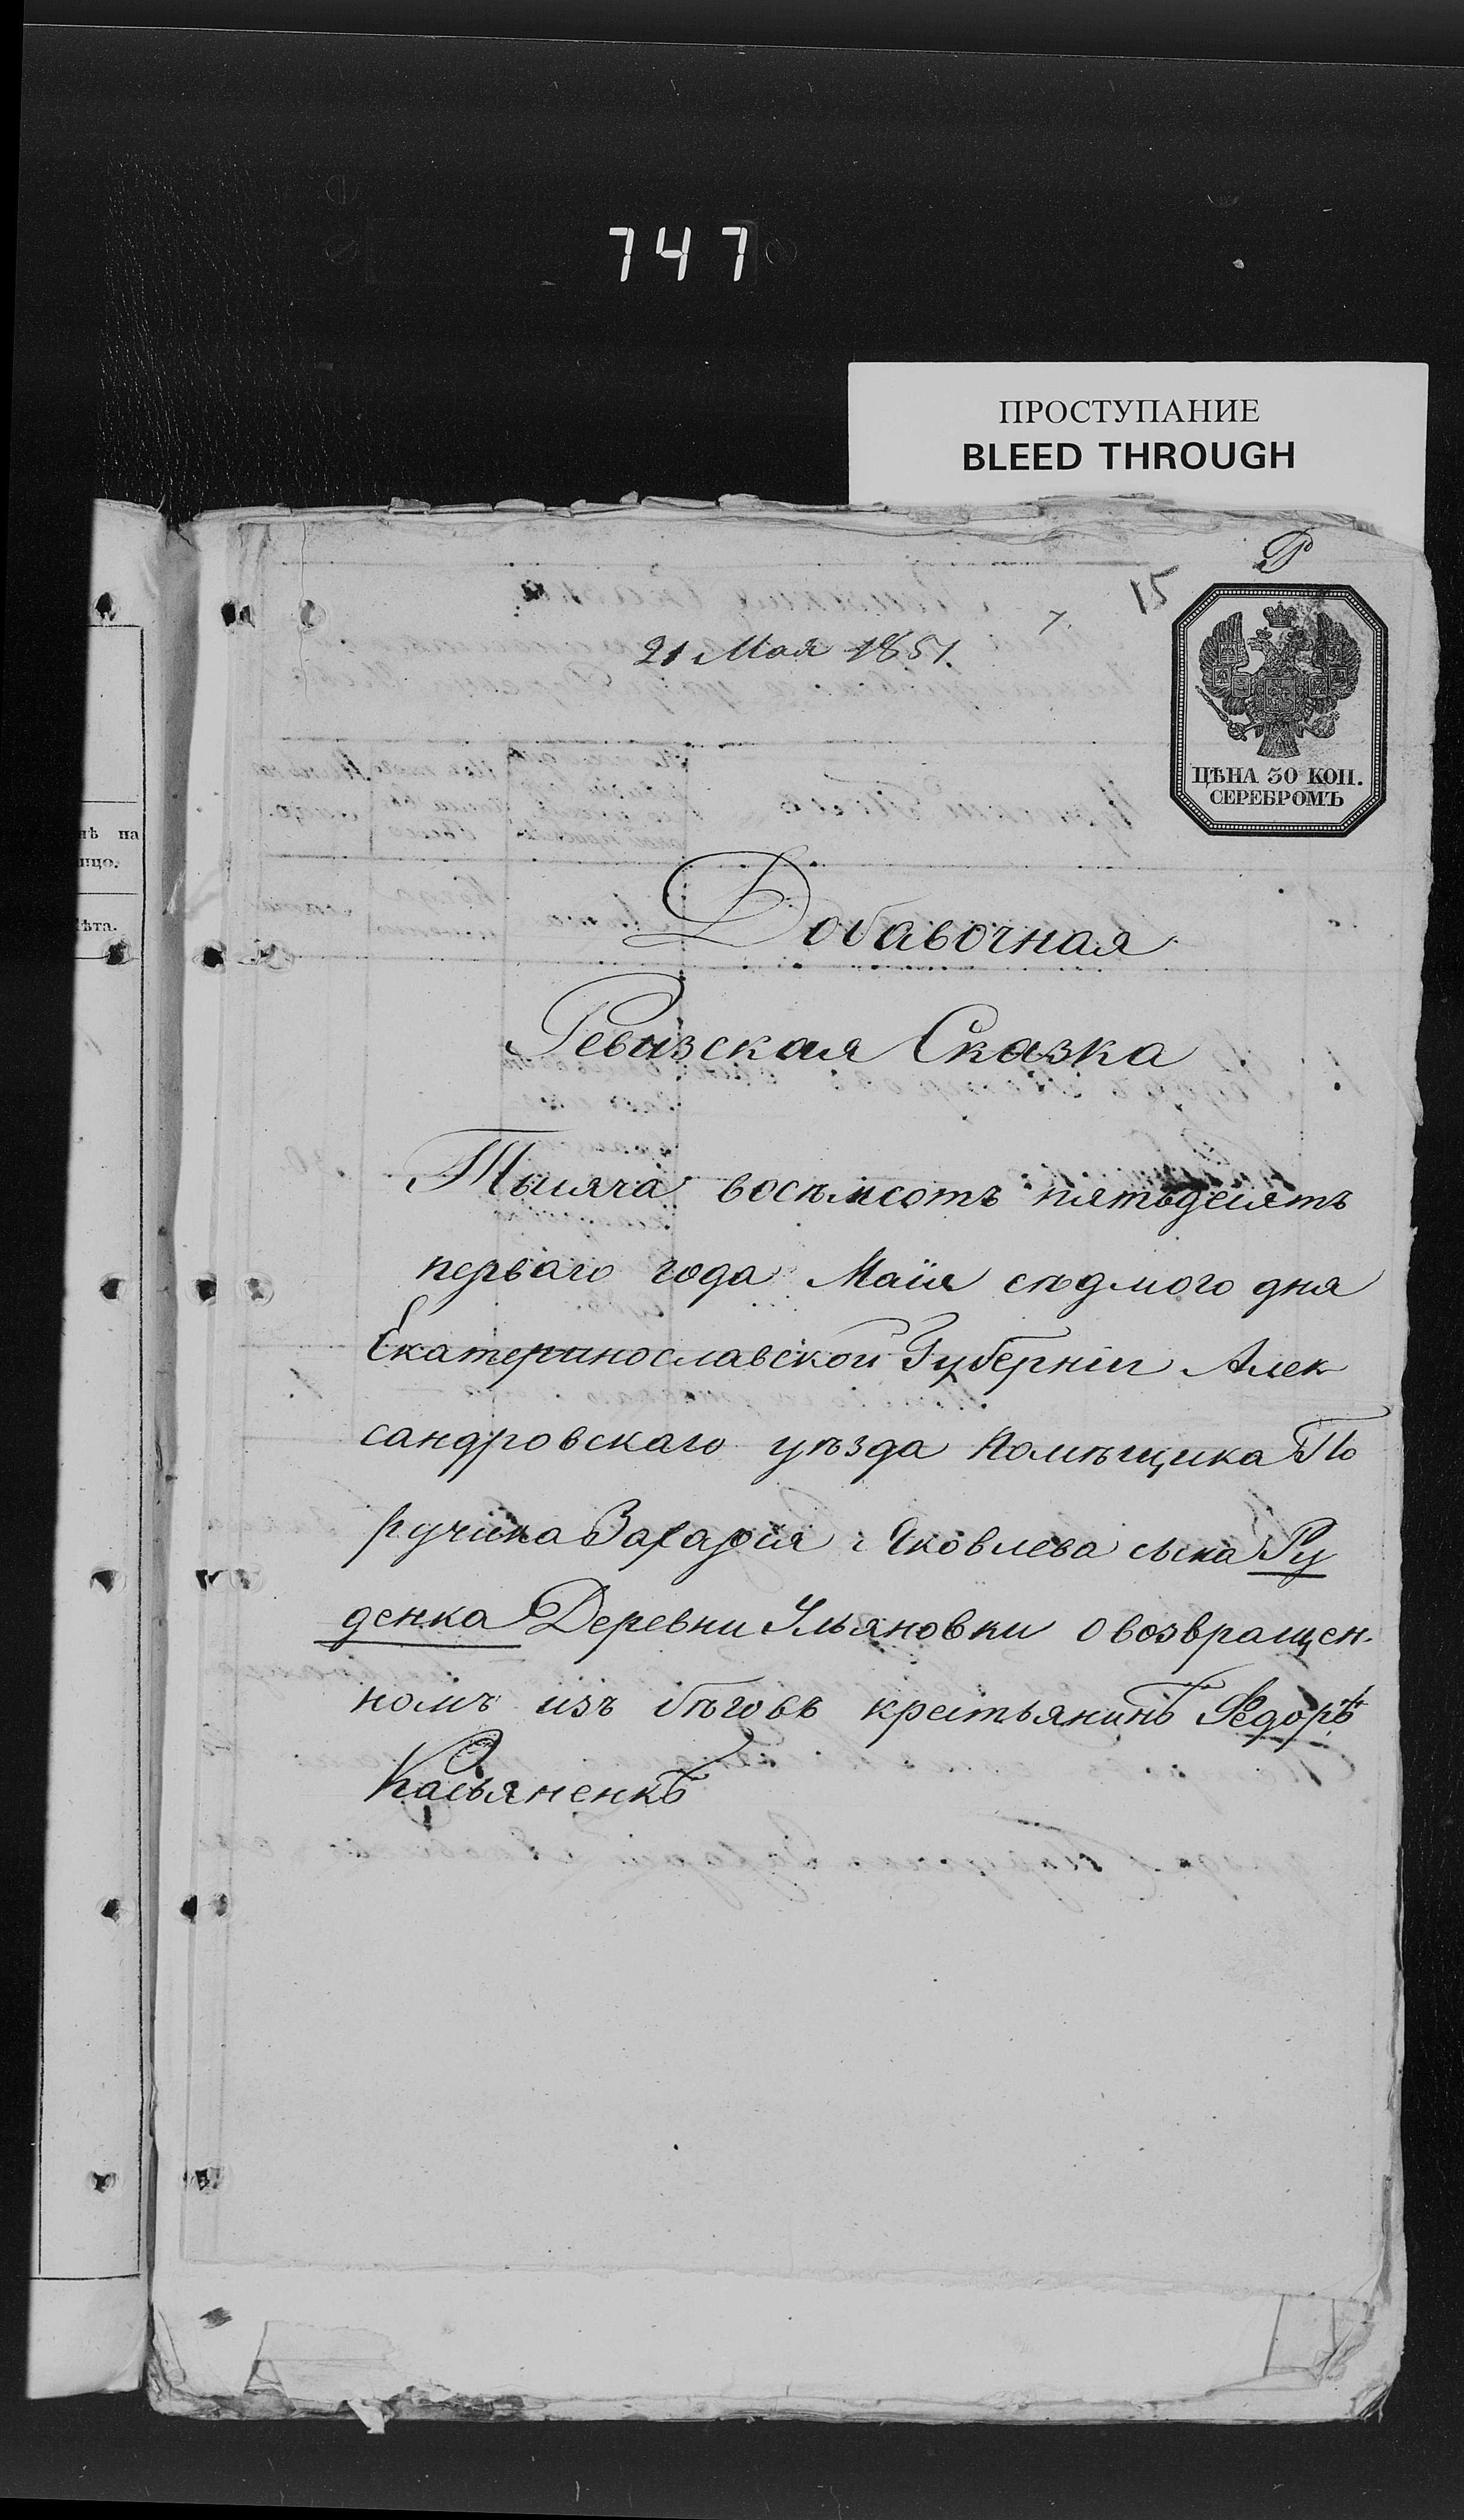 747
ПРОСТУПАНИЕ
BLEED THROUGH
15
7.
21 Мая 1851.
ЦѢНА 30 КОП.
СЕРЕБРОМЪ
нѣ на
ицо.
ѣта.
Добавочная
Ревизская Сказка
Тысяча восемьсотъ пятьдесятъ
перваго года Маія седмого дня
Екатеринославской Губерніи Алек
сандровскаго уѣзда Помѣщика По
ручика Захарія Яковлева сына Ру
денка Деревни Ульяновки о возвращен-
номъ изъ бѣговъ крестьянинѣ Федорѣ
Касьяненкѣ